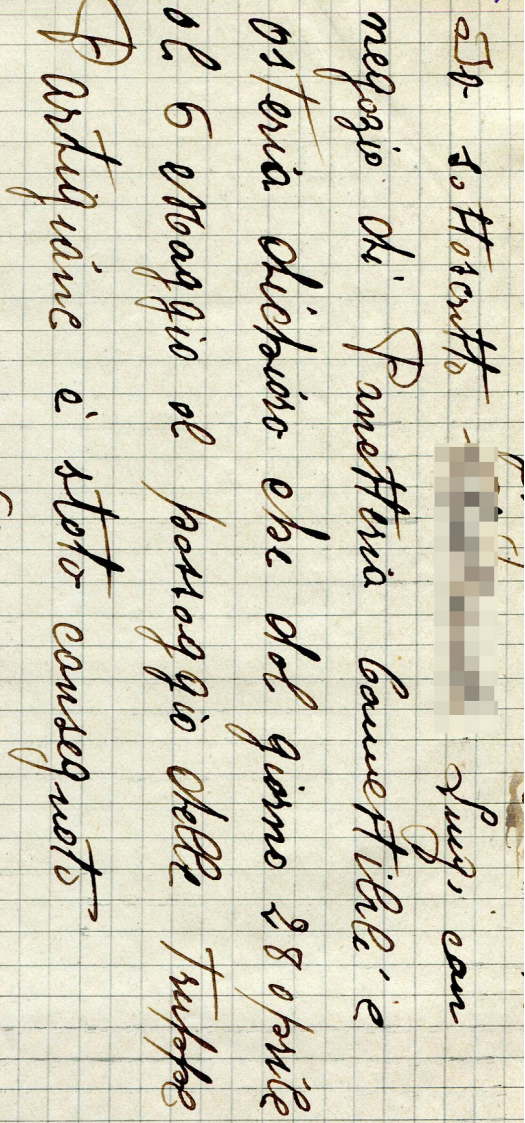 Io sottoscritto - Luigi con
negozio di Panetteria Comestibili e
osteria dichiaro che dal giorno 28 aprile
al 6 Maggio al passaggio delle Truppe
Partigiane è stato consegnato